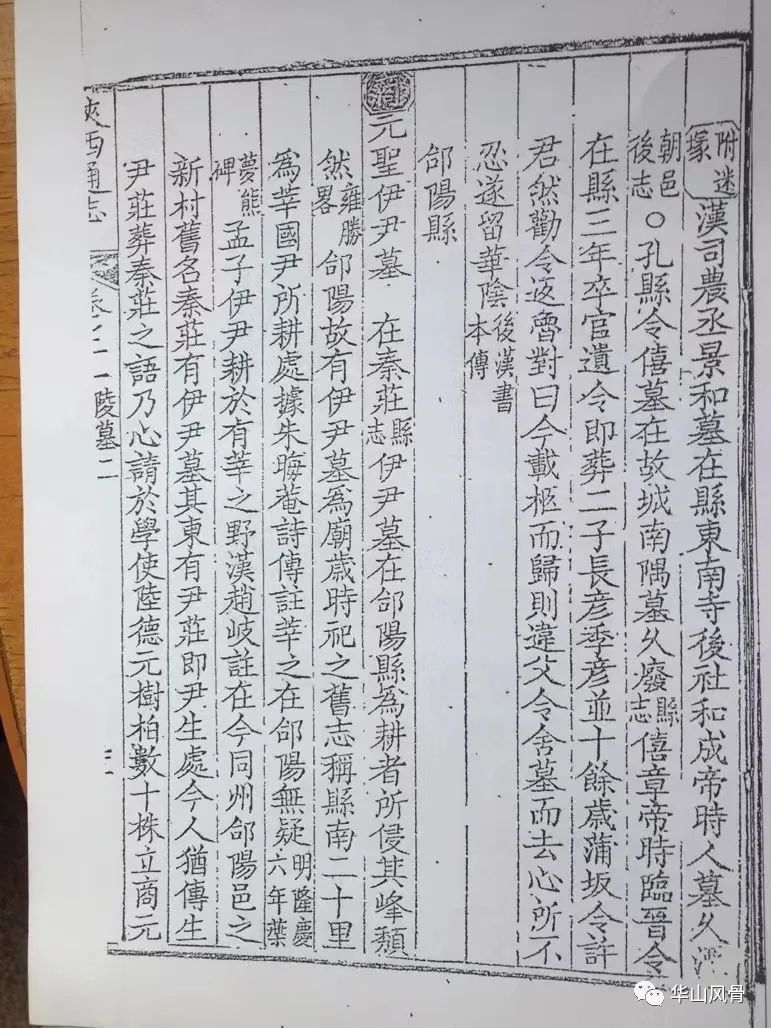 附迷塚 漢司農丞景和墓在縣東南寺後社和成帝時人墓久湮
朝邑後志 ○孔縣令僖墓在故城南隅墓久廢縣志 僖章帝時臨晉令
在縣三年卒官遺令即葬二子長彥季彥並十餘歲蒲坂令許
君然勸令返魯對曰今載柩而歸則違父令舍墓而去心所不
忍遂留華陰後漢書本傳
郃陽縣
元聖伊尹墓 在秦莊縣志 伊尹墓在郃陽縣為耕者所侵其峰頽
然雍勝畧 郃陽故有伊尹墓為廟歲時祀之舊志稱縣南二十里
為莘國尹所耕處據朱晦菴詩傳註莘之在郃陽無疑明隆慶六年葉
夢熊碑 孟子伊尹耕於有莘之野漢趙岐註在今同州郃陽邑之
新村舊名秦莊有伊尹墓其東有尹莊即尹生處今人猶傳生
尹莊葬秦莊之語乃心請於學使陸德元樹柏數十株立商元
陝西通志
陵墓二
华山风骨